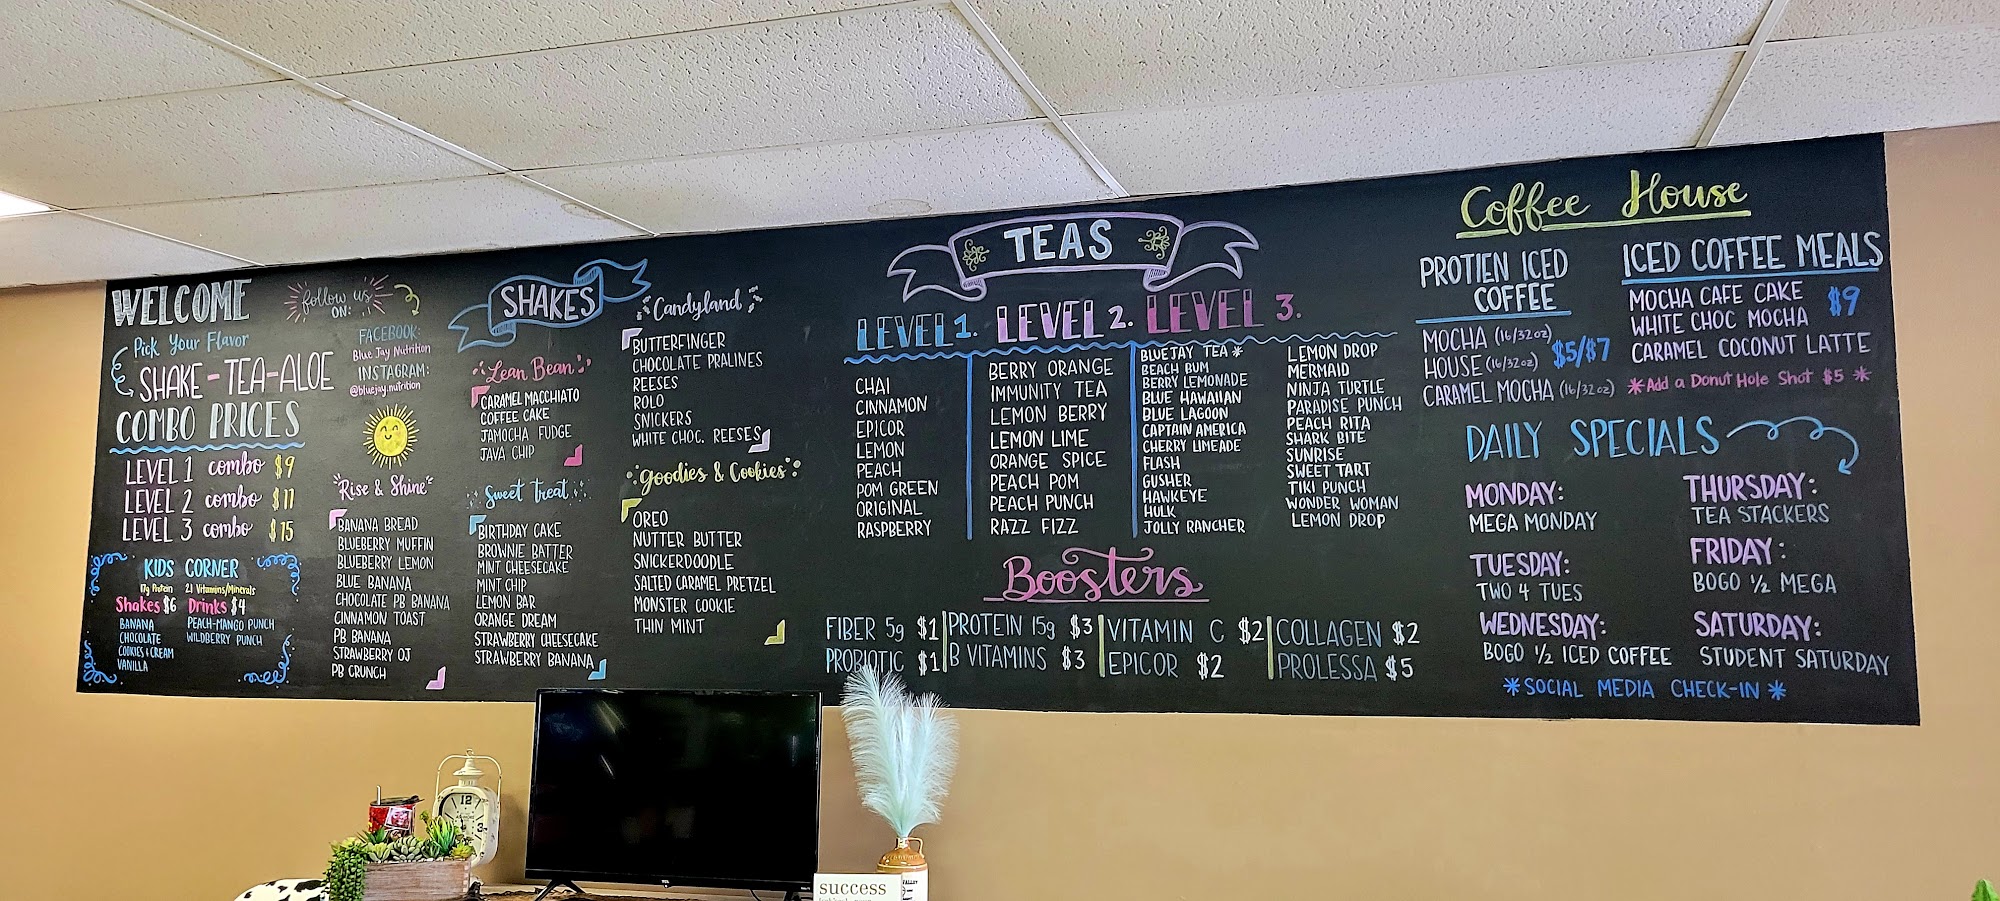 WELCOME
Pick Your Flavor
SHAKE - TEA - ALOE
COMBO PRICES
LEVEL 1 combo $9
LEVEL 2 combo $11
LEVEL 3 combo $15
KIDS CORNER
17g Protein 21 Vitamins/Minerals
Shakes $6 Drinks $4
BANANA
CHOCOLATE
COOKIES & CREAM
VANILLA
PEACH-MANGO PUNCH
WILDBERRY PUNCH
follow us
ON:
FACEBOOK:
Blue Jay Nutrition
INSTAGRAM:
@bluejay.nutrition
Rise & Shine
BANANA BREAD
BLUEBERRY MUFFIN
BLUEBERRY LEMON
BLUE BANANA
CHOCOLATE PB BANANA
CINNAMON TOAST
PB BANANA
STRAWBERRY OJ
PB CRUNCH
SHAKES
Lean Bean
CARAMEL MACCHIATO
COFFEE CAKE
JAMOCHA FUDGE
JAVA CHIP
Sweet Treat
BIRTHDAY CAKE
BROWNIE BATTER
MINT CHEESECAKE
MINT CHIP
LEMON BAR
ORANGE DREAM
STRAWBERRY CHEESECAKE
STRAWBERRY BANANA
Candyland
BUTTERFINGER
CHOCOLATE PRALINES
REESES
ROLO
SNICKERS
WHITE CHOC. REESES
Goodies & Cookies
OREO
NUTTER BUTTER
SNICKERDOODLE
SALTED CARAMEL PRETZEL
MONSTER COOKIE
THIN MINT
TEAS
LEVEL 1.
CHAI
CINNAMON
EPICOR
LEMON
PEACH
POM GREEN
ORIGINAL
RASPBERRY
LEVEL 2.
BERRY ORANGE
IMMUNITY TEA
LEMON BERRY
LEMON LIME
ORANGE SPICE
PEACH POM
PEACH PUNCH
RAZZ FIZZ
LEVEL 3.
BLUEJAY TEA *
BEACH BUM
BERRY LEMONADE
BLUE HAWAIIAN
BLUE LAGOON
CAPTAIN AMERICA
CHERRY LIMEADE
FLASH
GUSHER
HAWKEYE
HULK
JOLLY RANCHER
LEMON DROP
MERMAID
NINJA TURTLE
PARADISE PUNCH
PEACH RITA
SHARK BITE
SUNRISE
SWEET TART
TIKI PUNCH
WONDER WOMAN
LEMON DROP
Boosters
FIBER 5g $1
PROBIOTIC $1
PROTEIN 15g $3
B VITAMINS $3
VITAMIN C $2
EPICOR $2
COLLAGEN $2
PROLESSA $5
Coffee House
PROTIEN ICED
COFFEE
MOCHA (16/32oz)
HOUSE (16/32oz) $5/$7
CARAMEL MOCHA (16/32oz)
ICED COFFEE MEALS
MOCHA CAFE CAKE $9
WHITE CHOC MOCHA
CARAMEL COCONUT LATTE
*Add a Donut Hole Shot $5 *
DAILY SPECIALS
MONDAY:
MEGA MONDAY
TUESDAY:
TWO 4 TUES
WEDNESDAY:
BOGO 1/2 ICED COFFEE
THURSDAY:
TEA STACKERS
FRIDAY:
BOGO 1/2 MEGA
SATURDAY:
STUDENT SATURDAY
*SOCIAL MEDIA CHECK-IN *
12
3
TCL
success